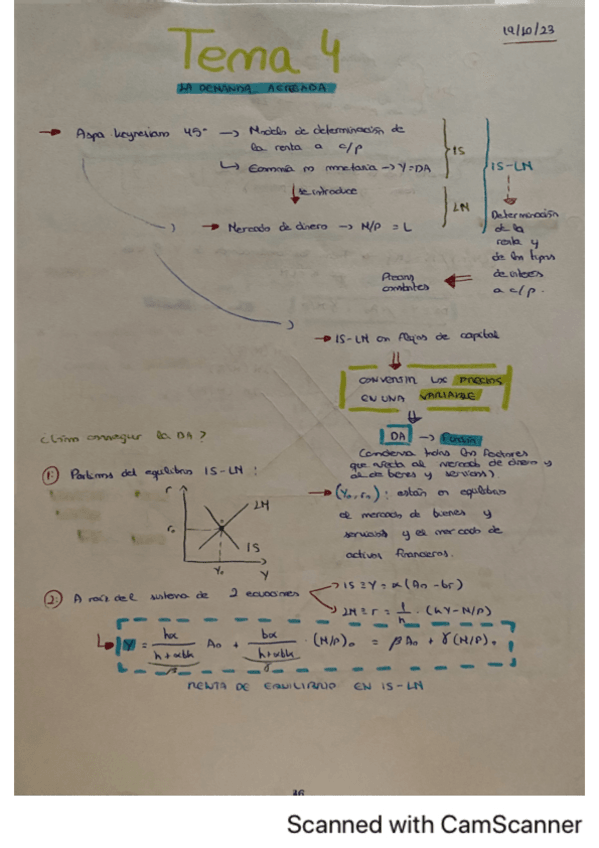 19/10/23
Tema 4
LA DEMANDA AGREGADA
→ Aspa keynesiana 45° → Modelo de determinación de
la renta a c/p
↳ Economía no monetaria → Y = DA
} IS
↓ se introduce
→ Mercado de dinero → M/P = L
} LM
IS-LM
Determinación
de la
renta y
de los tipos
de interés
a c/p.
Precios
constantes
→ IS-LM con flujos de capital
CONVERTIR LOS PRECIOS
EN UNA VARIABLE
DA → Función
Condensa todos los factores
que afecta al mercado de dinero y
al de bienes y servicios).
¿Cómo conseguir la DA?
1: Partimos del equilibrio IS-LM:
r
LM
r₀
IS
Y₀
Y
→ (Y₀, r₀): están en equilibrio
el mercado de bienes y
servicios y el mercado de
activos financieros.
2: A raíz del sistema de 2 ecuaciones
→ IS ≡ Y = α(A₀ - br)
→ LM ≡ r = 1/h · (kY - M/P)
↳ Y = hα/(h+αbk) A₀ + bα/(h+αbk) · (M/P)₀ = β A₀ + γ(M/P)₀
β
γ
RENTA DE EQUILIBRIO EN IS-LM
Scanned with CamScanner